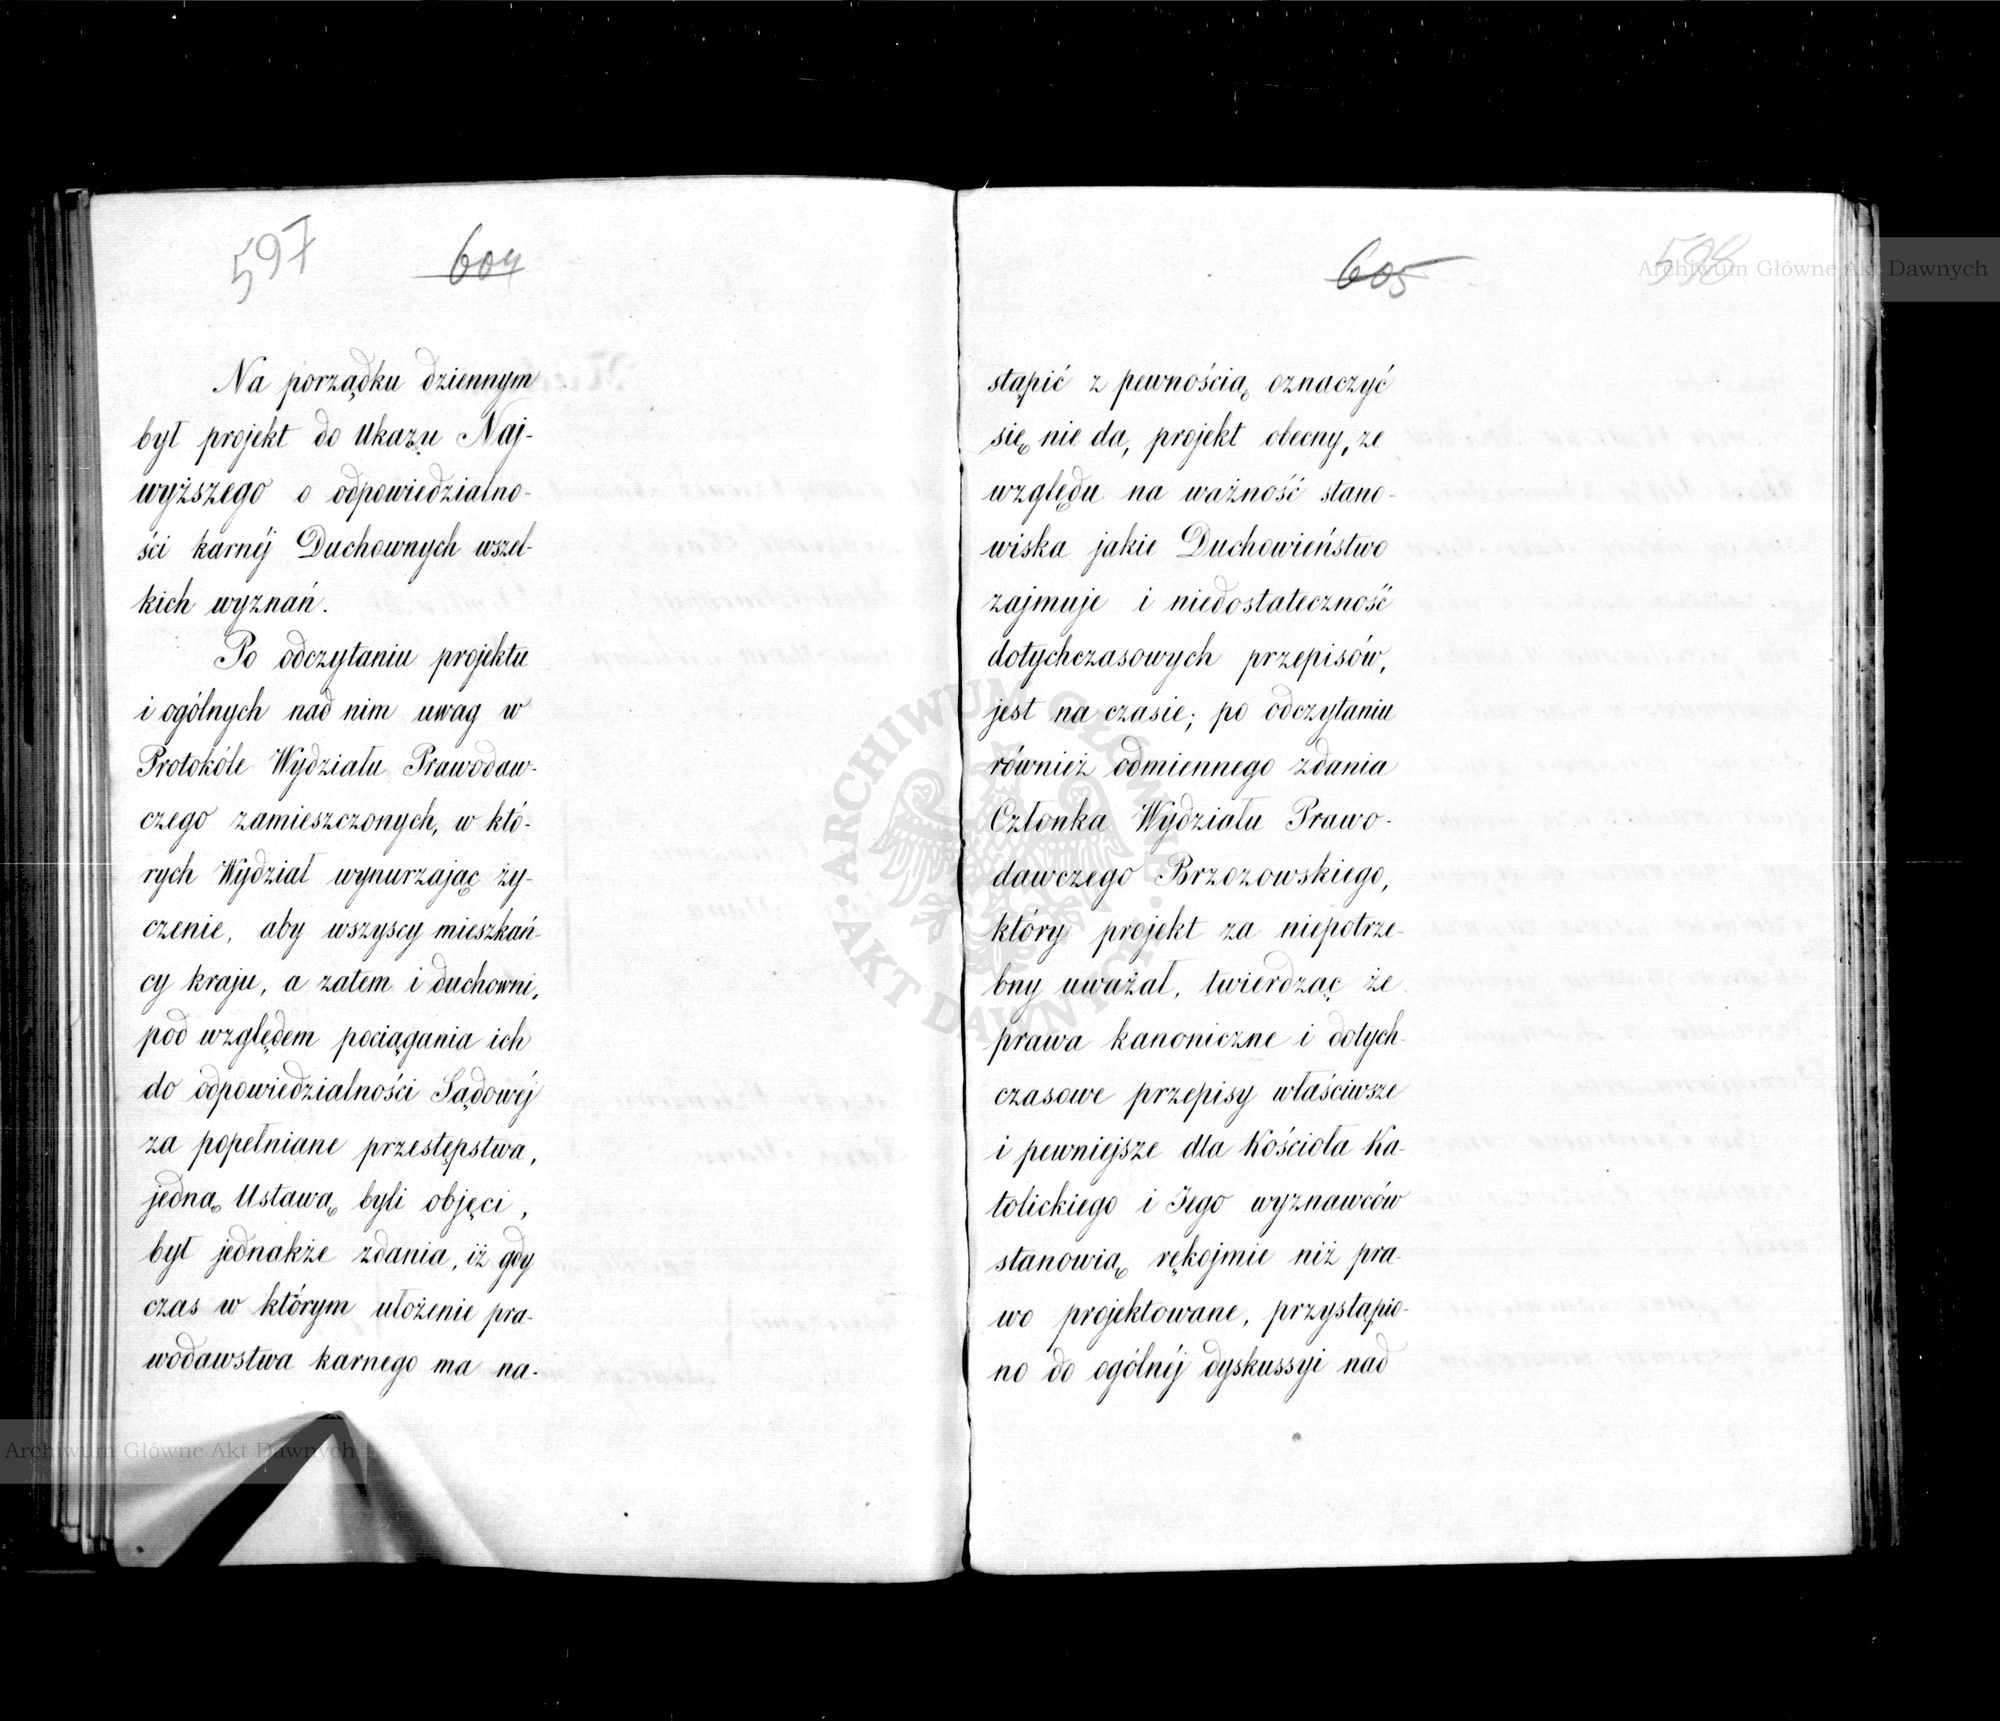 597 604
Na porządku dziennym
był projekt do Ukazu Naj-
wyższego o odpowiedzialno-
ści karnéj Duchownych wszel-
kich wyznań.
Po odczytaniu projektu
i ogólnych nad nim uwag w
Protokóle Wydziału Prawodaw-
czego zamieszczonych, w któ-
rych Wydział wynurzając ży-
czenie, aby wszyscy mieszkań-
cy kraju, a zatem i duchowni,
pod względem pociągania ich
do odpowiedzialności Sądowéj
za popełniane przestępstwa,
jedną Ustawą byli objęci,
był jednakże zdania, iż gdy
czas w którym ułożenie pra-
wodawstwa karnego ma na-
605 598
stąpić z pewnością oznaczyć
się nie da, projekt obecny, ze
względu na ważność stano-
wiska jakie Duchowieństwo
zajmuje i niedostateczność
dotychczasowych przepisów,
jest na czasie; po odczytaniu
również odmiennego zdania
Członka Wydziału Prawo-
dawczego Brzozowskiego,
który projekt za niepotrze-
bny uważał, twierdząc że
prawa kanoniczne i dotych-
czasowe przepisy właściwsze
i pewniejsze dla Kościoła Ka-
tolickiego i Jego wyznawców
stanowią rękojmie niż pra-
wo projektowane, przystąpio-
no do ogólnéj dyskussyi nad
Archiwum Główne Akt Dawnych
Archiwum Główne Akt Dawnych
ARCHIWUM GŁÓWNE AKT DAWNYCH